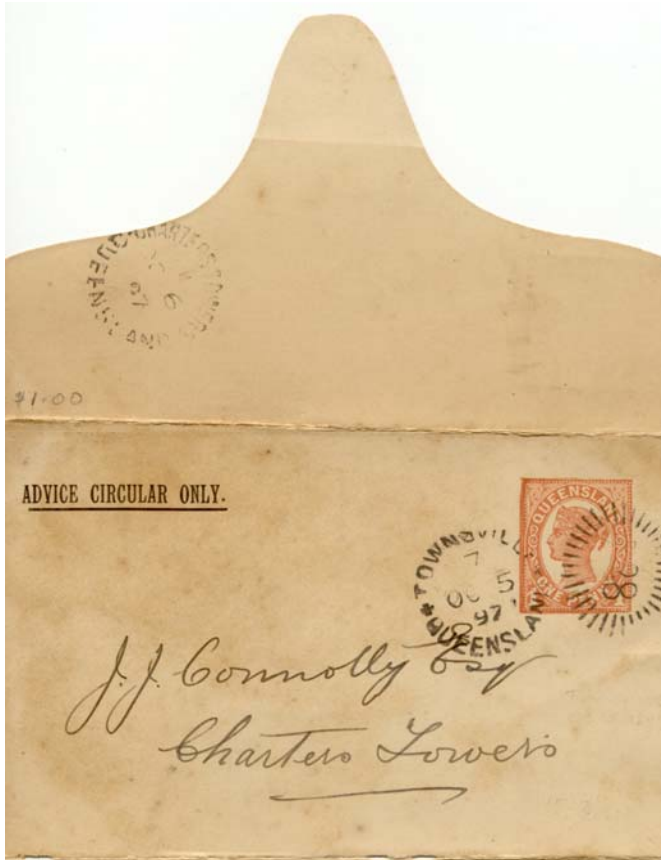 CHARTERS TOWERS
QUEENSLAND
6
97
$1.00
ADVICE CIRCULAR ONLY.
QUEENSLAND
ONE PENNY
TOWNSVILLE
7
OC 5
97
QUEENSLAND
J. J. Connolly Esq
Charters Towers